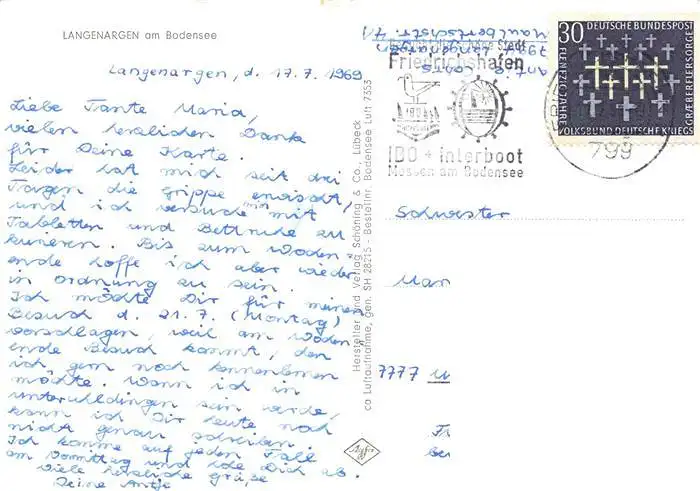 LANGENARGEN am Bodensee
Langenargen, d. 17.7.1969
Liebe Tante Maria,
vielen herzlichen Dank
für Deine Karte.
Leider hat mich seit drei
Tagen die Grippe erwischt,
und ich versuche mich mit
Tabletten und Bettruhe zu
kurieren. Bis zum Wochen-
ende hoffe ich aber wieder
in Ordnung zu sein.
Ich möchte Dir für meinen
Besuch d. 21.7. (Montag)
vorschlagen, weil am Wochen
ende Besuch kommt, den
ich gern noch kennenlernen
möchte. Wann ich in
Unteruhldingen sein werde,
kann ich Dir heute noch
nicht genau schreiben
Ich komme auf jeden Fall
am Vormittag und hole Dich ab.
Viele herzliche Grüße
Deine Antje
Hersteller und Verlag Schöning & Co., Lübeck
ca Luftaufnahme, gen. SH 28215 - Bestellnr. Bodensee Luft 7353
Antje
7994 Langenargen
Maulbertschstr. 71
Stadt
Friedrichshafen
IBO + interboot
Messen am Bodensee
799
30
DEUTSCHE BUNDESPOST
FUENFZIG JAHRE
VOLKSBUND DEUTSCHE KRIEGS
GRAEBERFUERSORGE
Schwester
Mar
7777 U